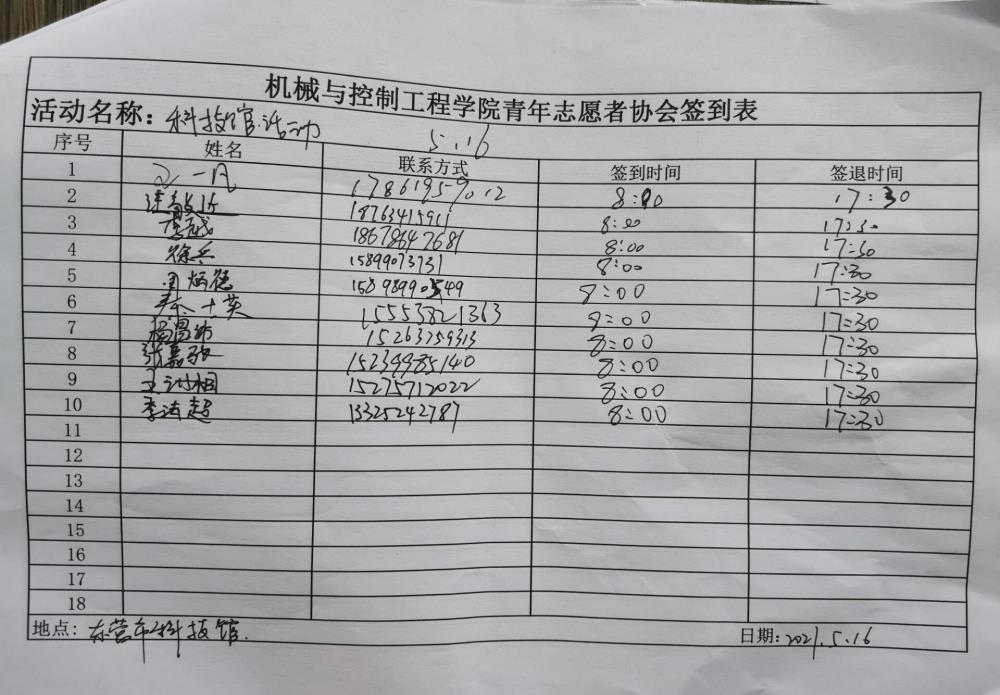 机械与控制工程学院青年志愿者协会签到表
活动名称：科技馆活动 5.16
序号 姓名 联系方式 签到时间 签退时间
1 一凡 17861959012 8:00 17:30
2 18763415911 8:00 17:30
3 李威 18678647681 8:00 17:30
4 徐兵 15899073731 8:00 17:30
5 周炳德 15898990549 8:00 17:30
6 秦士英 15553821363 8:00 17:30
7 杨昌 15263759313 8:00 17:30
8 张嘉 15234985140 8:00 17:30
9 王 15275712022 8:00 17:30
10 李洁超 13325242787 8:00 17:30
11
12
13
14
15
16
17
18
地点：东营市科技馆. 日期：2021.5.16